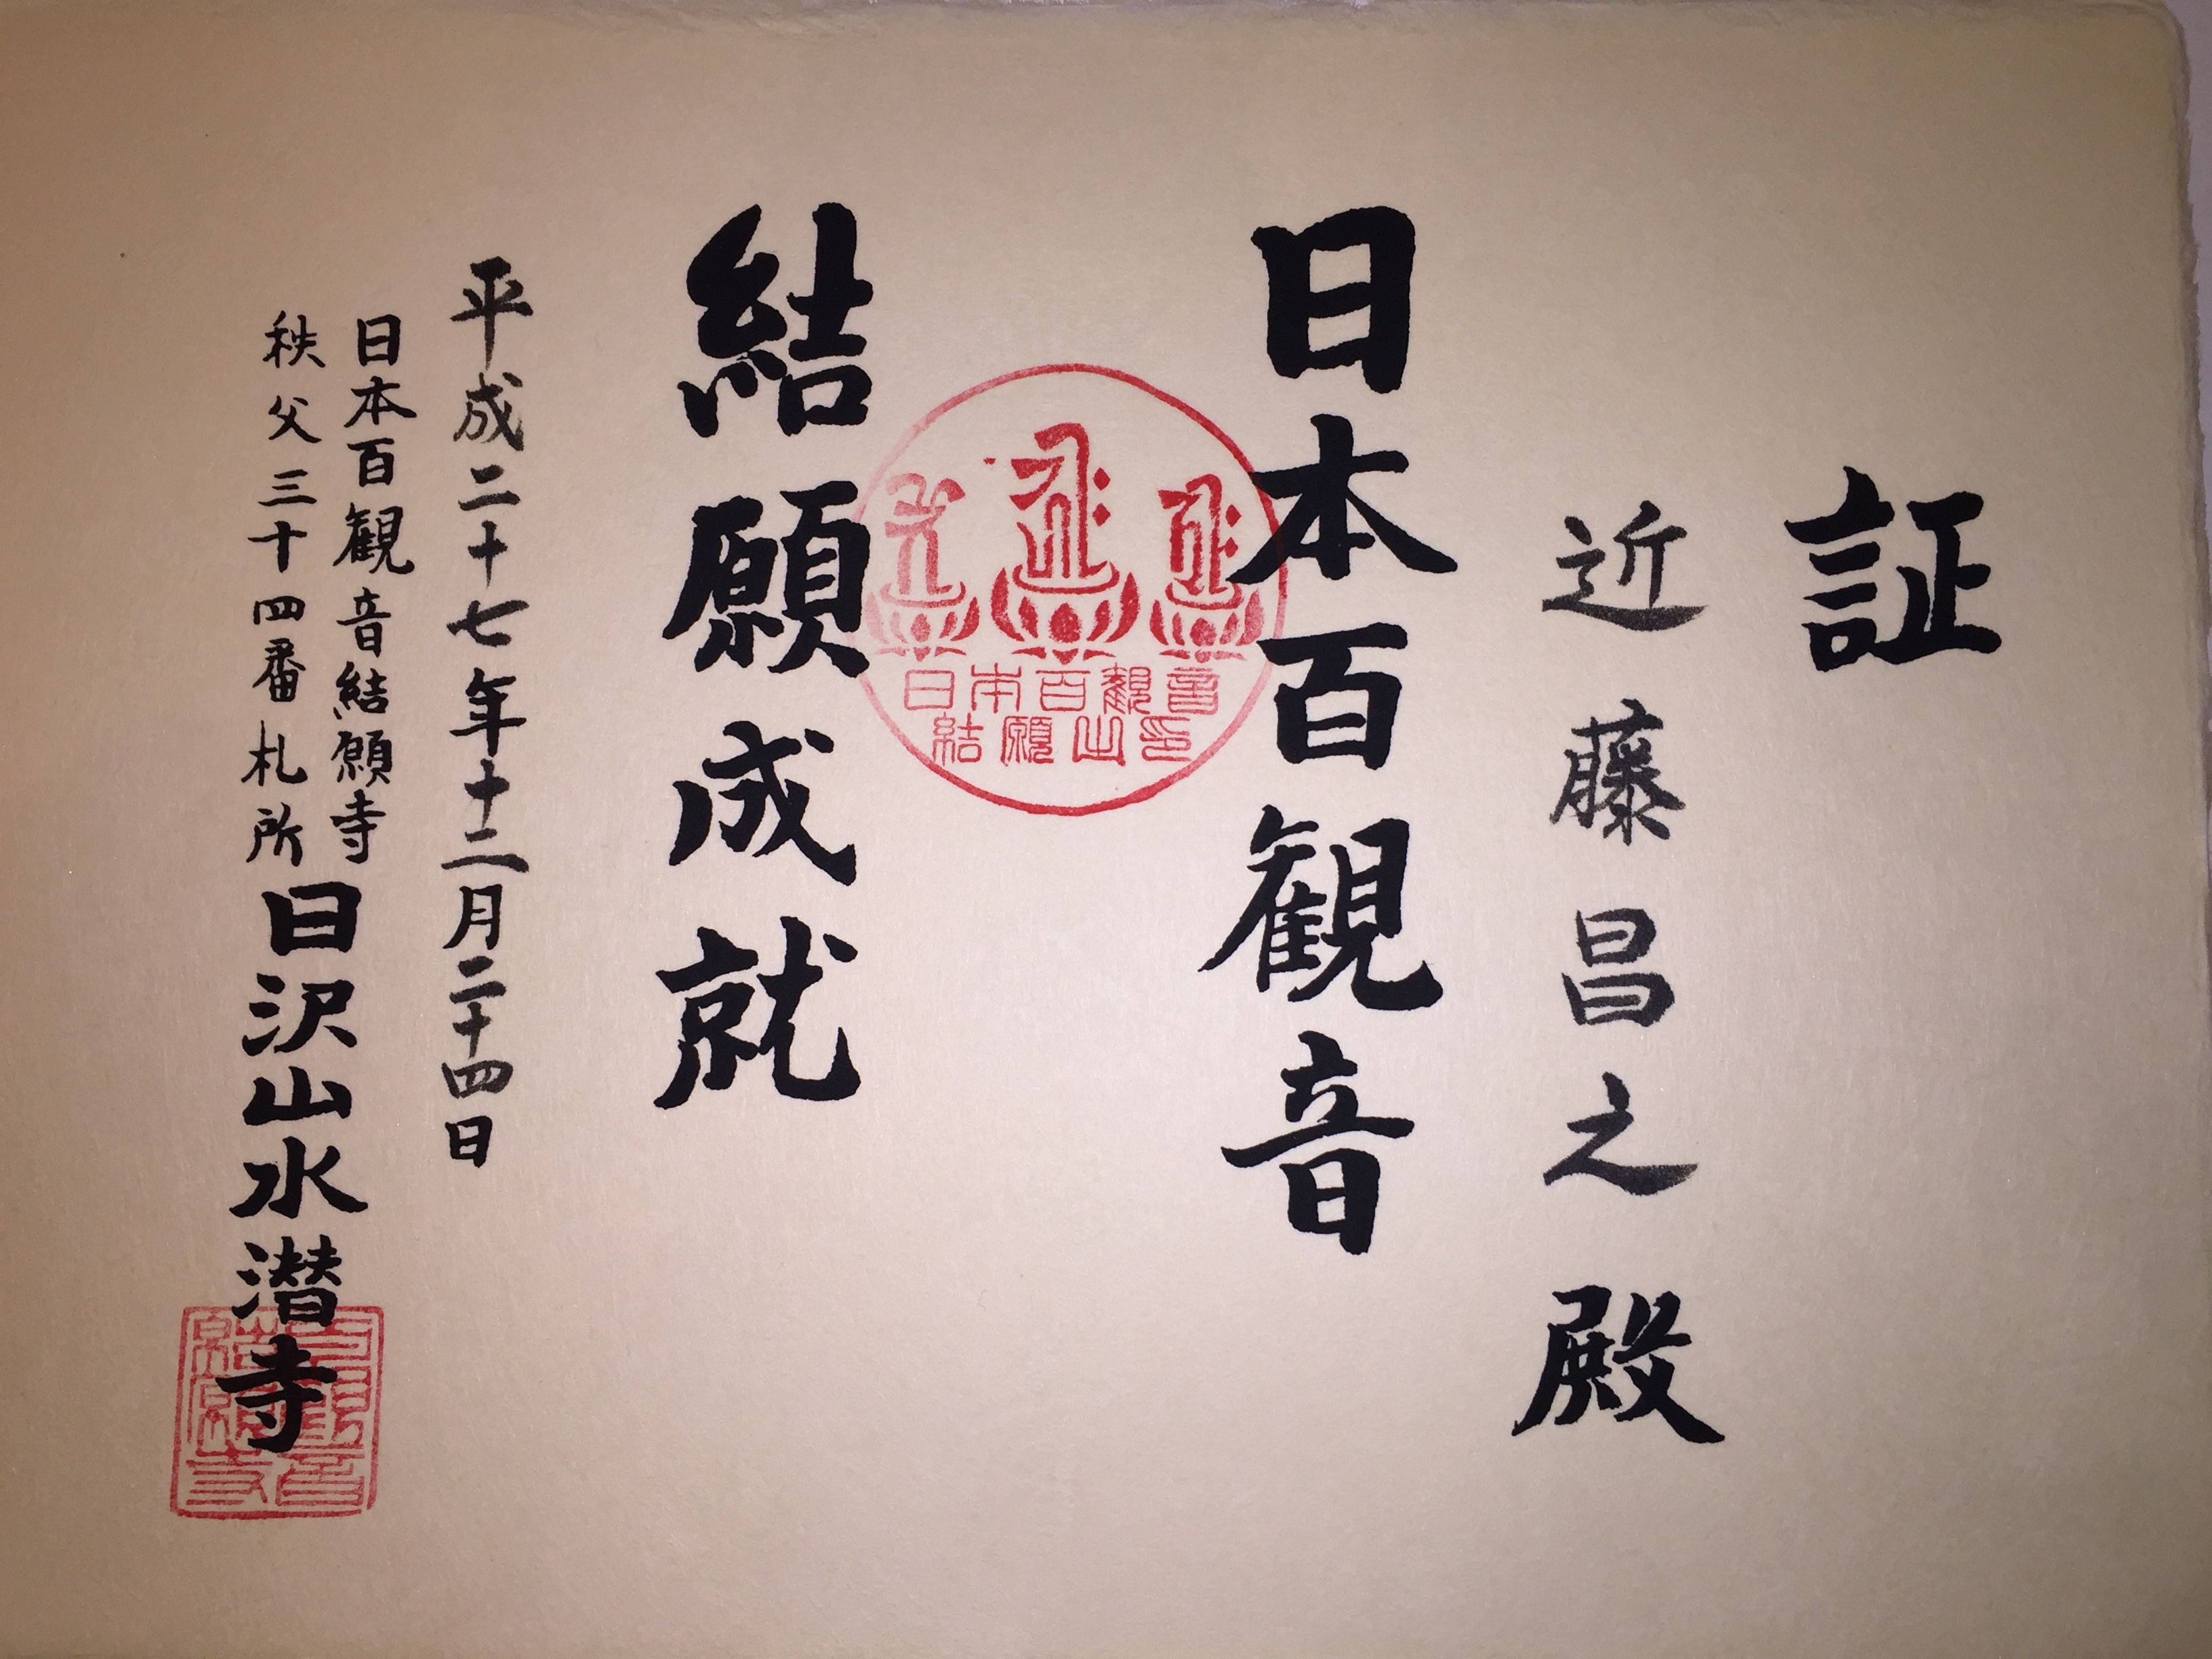 証
近藤昌之殿
日本百観音
日本百観音
結願山印
結願成就
平成二十七年十二月二十四日
日本百観音結願寺
秩父三十四番札所
日沢山水潜寺
百観音
結願寺